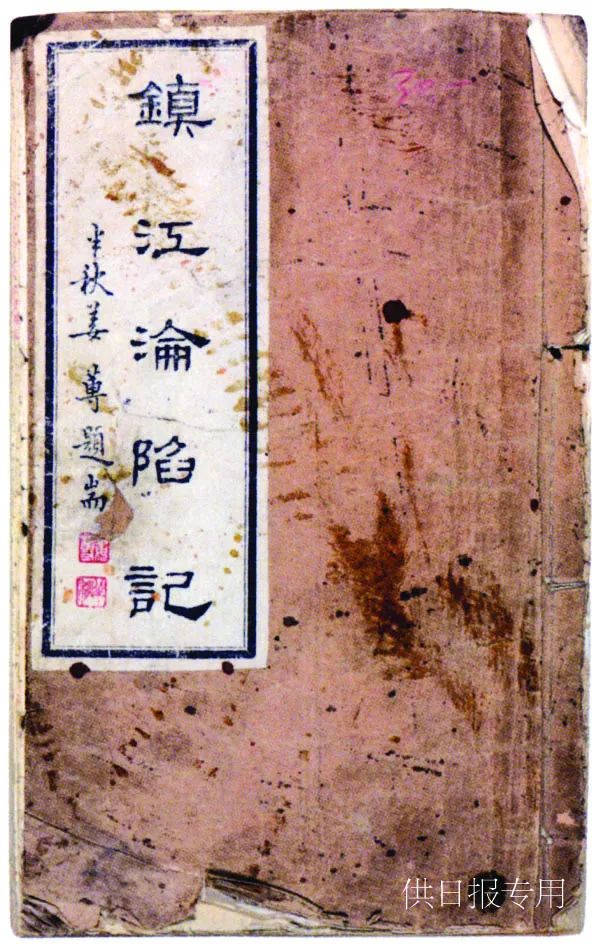 鎮江淪陷記
半秋姜題耑
供日报专用